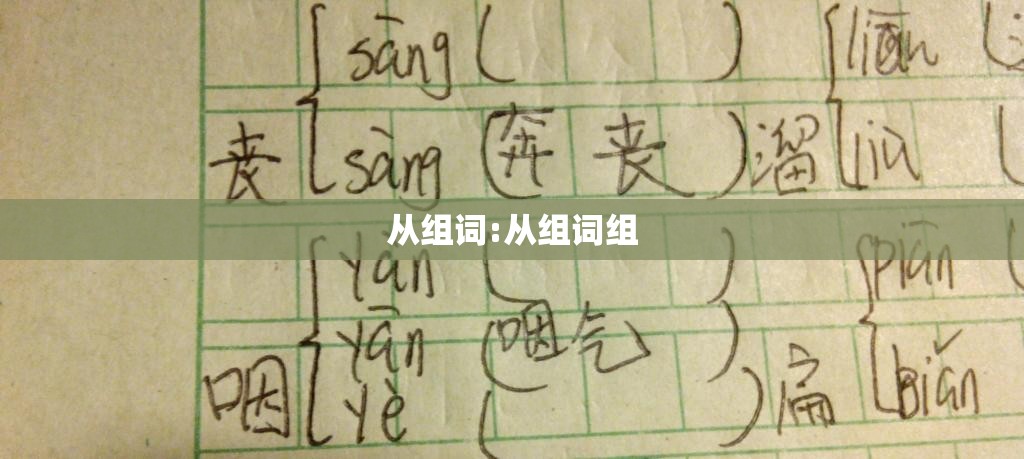 sāng ( ) liū (
丧 sāng (奔 丧) 溜 liù (
从组词:从组词组
yàn ( ) piān (
yān (咽气)
咽 yè ( ) 扁 biǎn